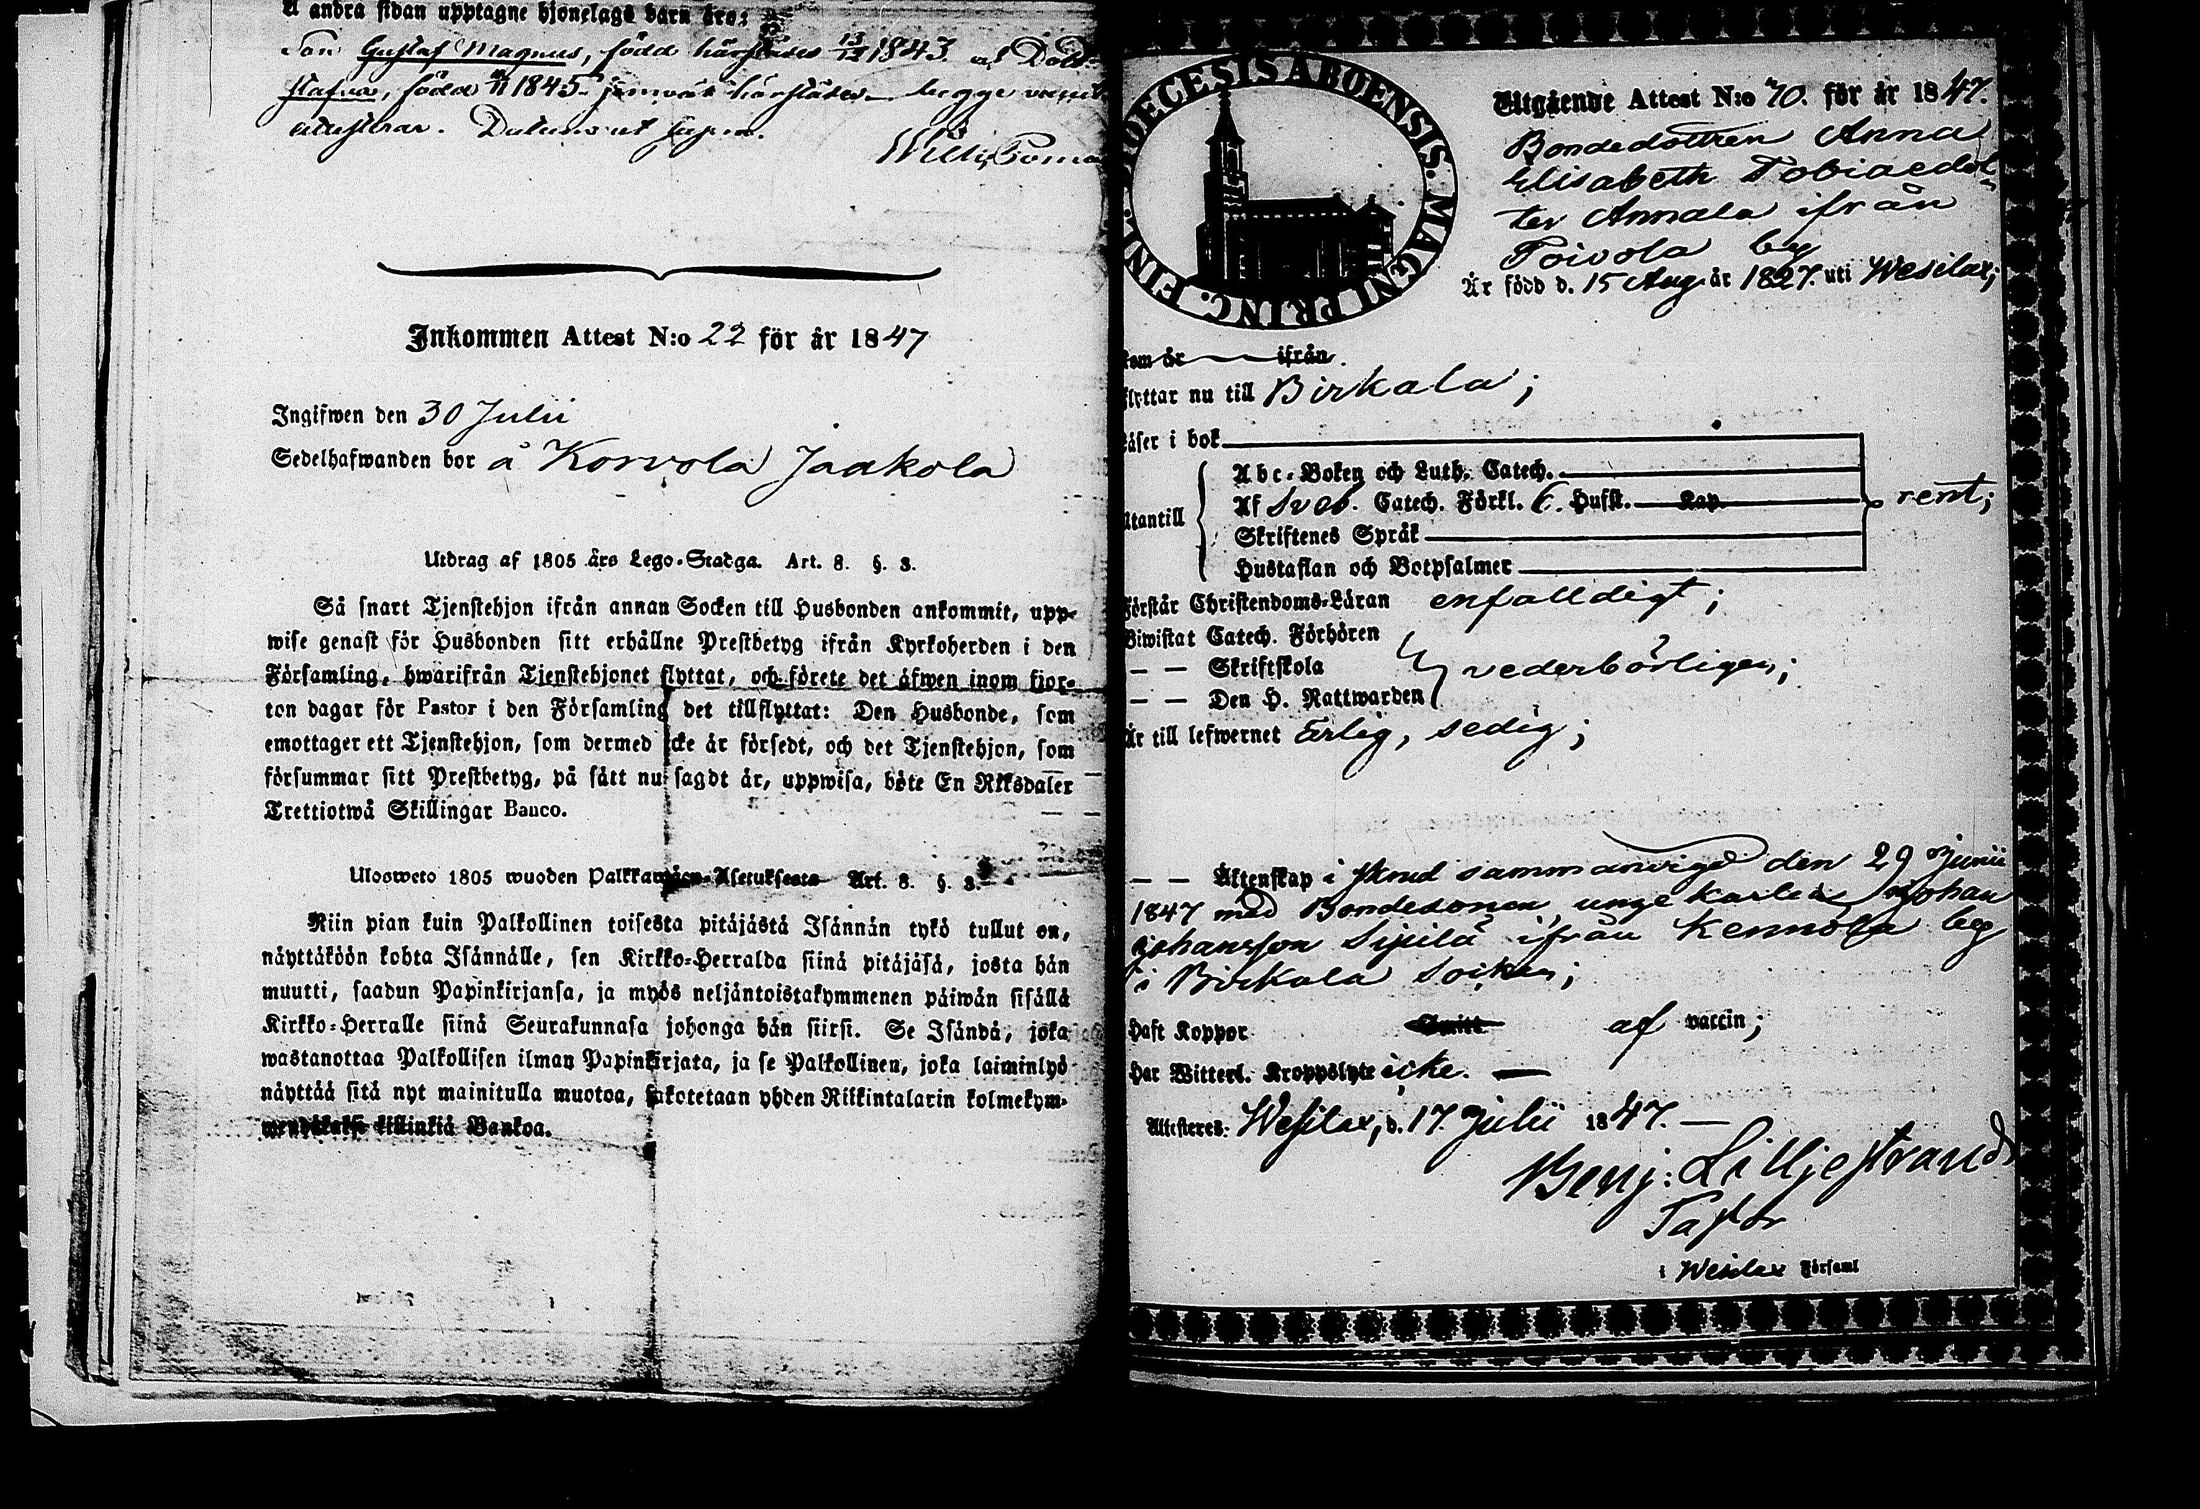 å andra sidan upptagne hjonelags barn äro:
Son Gustaf Magnus, född härstädes 13/12 1843. och Dott-
född 1845 jemväl härstädes begge
Datum ut supra.
Inkommen Attest N:o 22 för år 1847
Ingifwen den 30 Julii
Sedelhafwanden bor å Korvola Jaakola
Utdrag af 1805 års Lego-Stadga. Art. 8. §. 3.
Så snart Tjenstehjon ifrån annan Socken till Husbonden ankommit, upp-
wise genast för Husbonden sitt erhållne Prestbetyg ifrån Kyrkoherden i den
Församling, hwarifrån Tjenstehjonet flyttat, och förete det äfwen inom fjor-
ton dagar för Pastor i den Församling det tillflyttat: Den Husbonde, som
emottager ett Tjenstehjon, som dermed icke är försedt, och det Tjenstehjon, som
försummar sitt Prestbetyg, på sätt nu sagdt är, uppwisa, böte En Riksdaler
Trettiotwå Skillingar Banco.
Ulosweto 1805 wuoden Palkkawäen-Asetuksesta Art. 8. §. 3.
Niin pian kuin Palkollinen toisesta pitäjästä Isännän tykö tullut on,
näyttäköön kohta Isännälle, sen Kirkko-Herralda siinä pitäjäsä, josta hän
muutti, saadun Papinkirjansa, ja myös neljäntoistakymmenen päiwän sisällä
Kirkko-Herralle siinä Seurakunnasa johonga hän siirsi. Se Isändä, joka
wastanottaa Palkollisen ilman Papinkirjata, ja se Palkollinen, joka laiminlyö
näyttää sitä nyt mainitulla muotoa, sakotetaan yhden Riikintalarin kolmekym-
mendäkaksi killinkiä Bankoa.
DIOECESIS ABOENSIS. MAGNI PRINC. FINL.
Utgående Attest N:o 70. för år 1847.
Bondedottren Anna
Elisabeth Tobiaedot-
ter Annala ifrån
Toivola by
Är född d. 15 Aug. år 1827. uti Wesilax;
kom år ifrån
flyttar nu till Birkala;
Läser i bok
Abc-Boken och Luth. Catech.
Utantill Af Sveb. Catech. Förkl. C. Husst. Kap. rent;
Skriftenes Språk
Hustaflan och Botpsalmer
Förstår Christendoms-Läran enfalldigt;
Biwistat Catech. Förhören
— — Skriftskola vederbörligen;
— — Den H. Nattwarden
Är till lefwernet Ärlig, sedig;
— — Äktenskap i stånd sammanvigd den 29 Junii
1847 med Bondesonen unge karlen Johan
Johansson Sipilä ifrån Kennola by
i Birkala Socken;
Haft Koppor af vaccin;
Har Witterl. Kroppslyte icke.
Attesteres: Wesilax, d. 17. Julii 1847.
Benj: Lilljestrand
Pastor
i Wesilax Församl